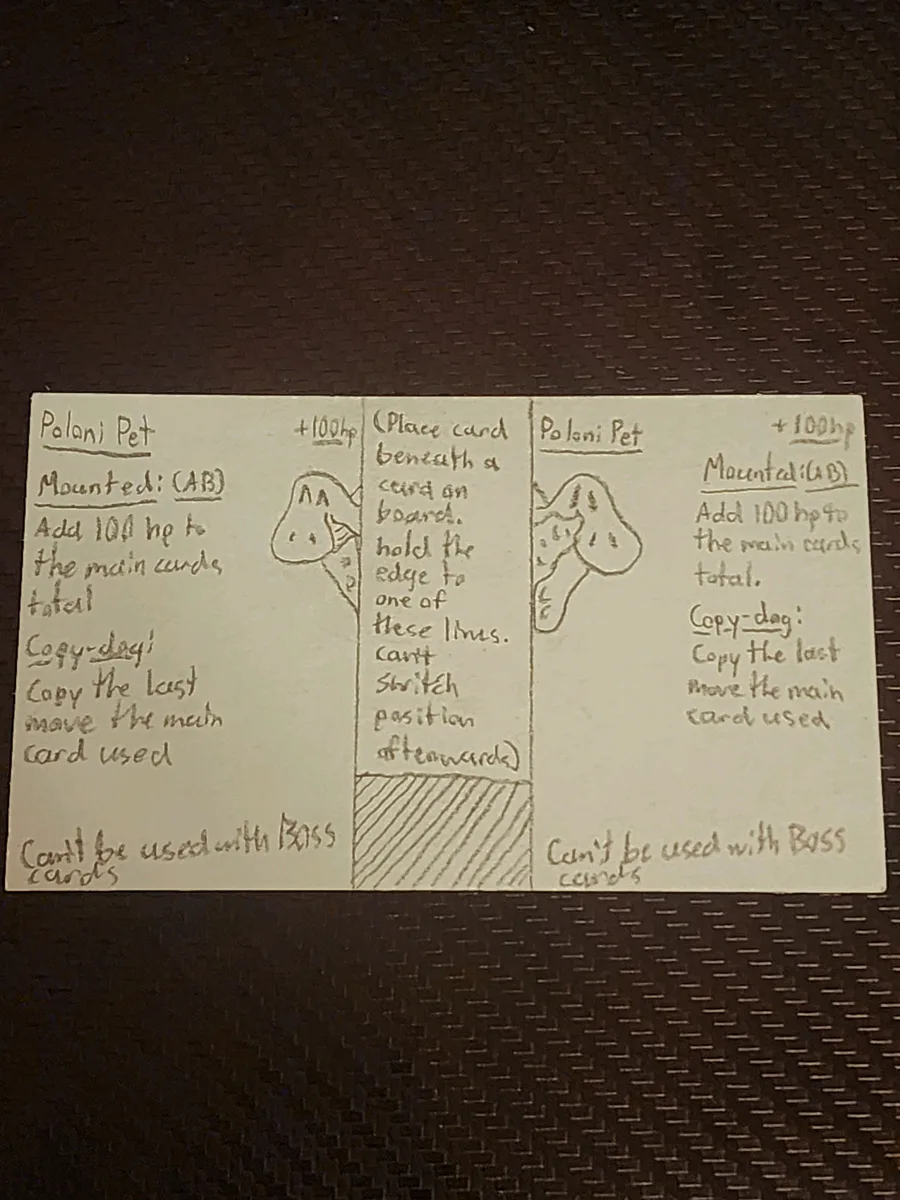 Poloni Pet
+100hp
Mounted: (AB)
Add 100 hp to
the main cards
total
Copy-dog:
Copy the last
move the main
card used
Can't be used with Boss
cards
(Place card
beneath a
card on
board.
hold the
edge to
one of
these lines.
can't
switch
position
afterwards)
Poloni Pet
+100hp
Mounted: (AB)
Add 100 hp to
the main cards
total.
Copy-dog:
Copy the last
move the main
card used
Can't be used with Boss
cards